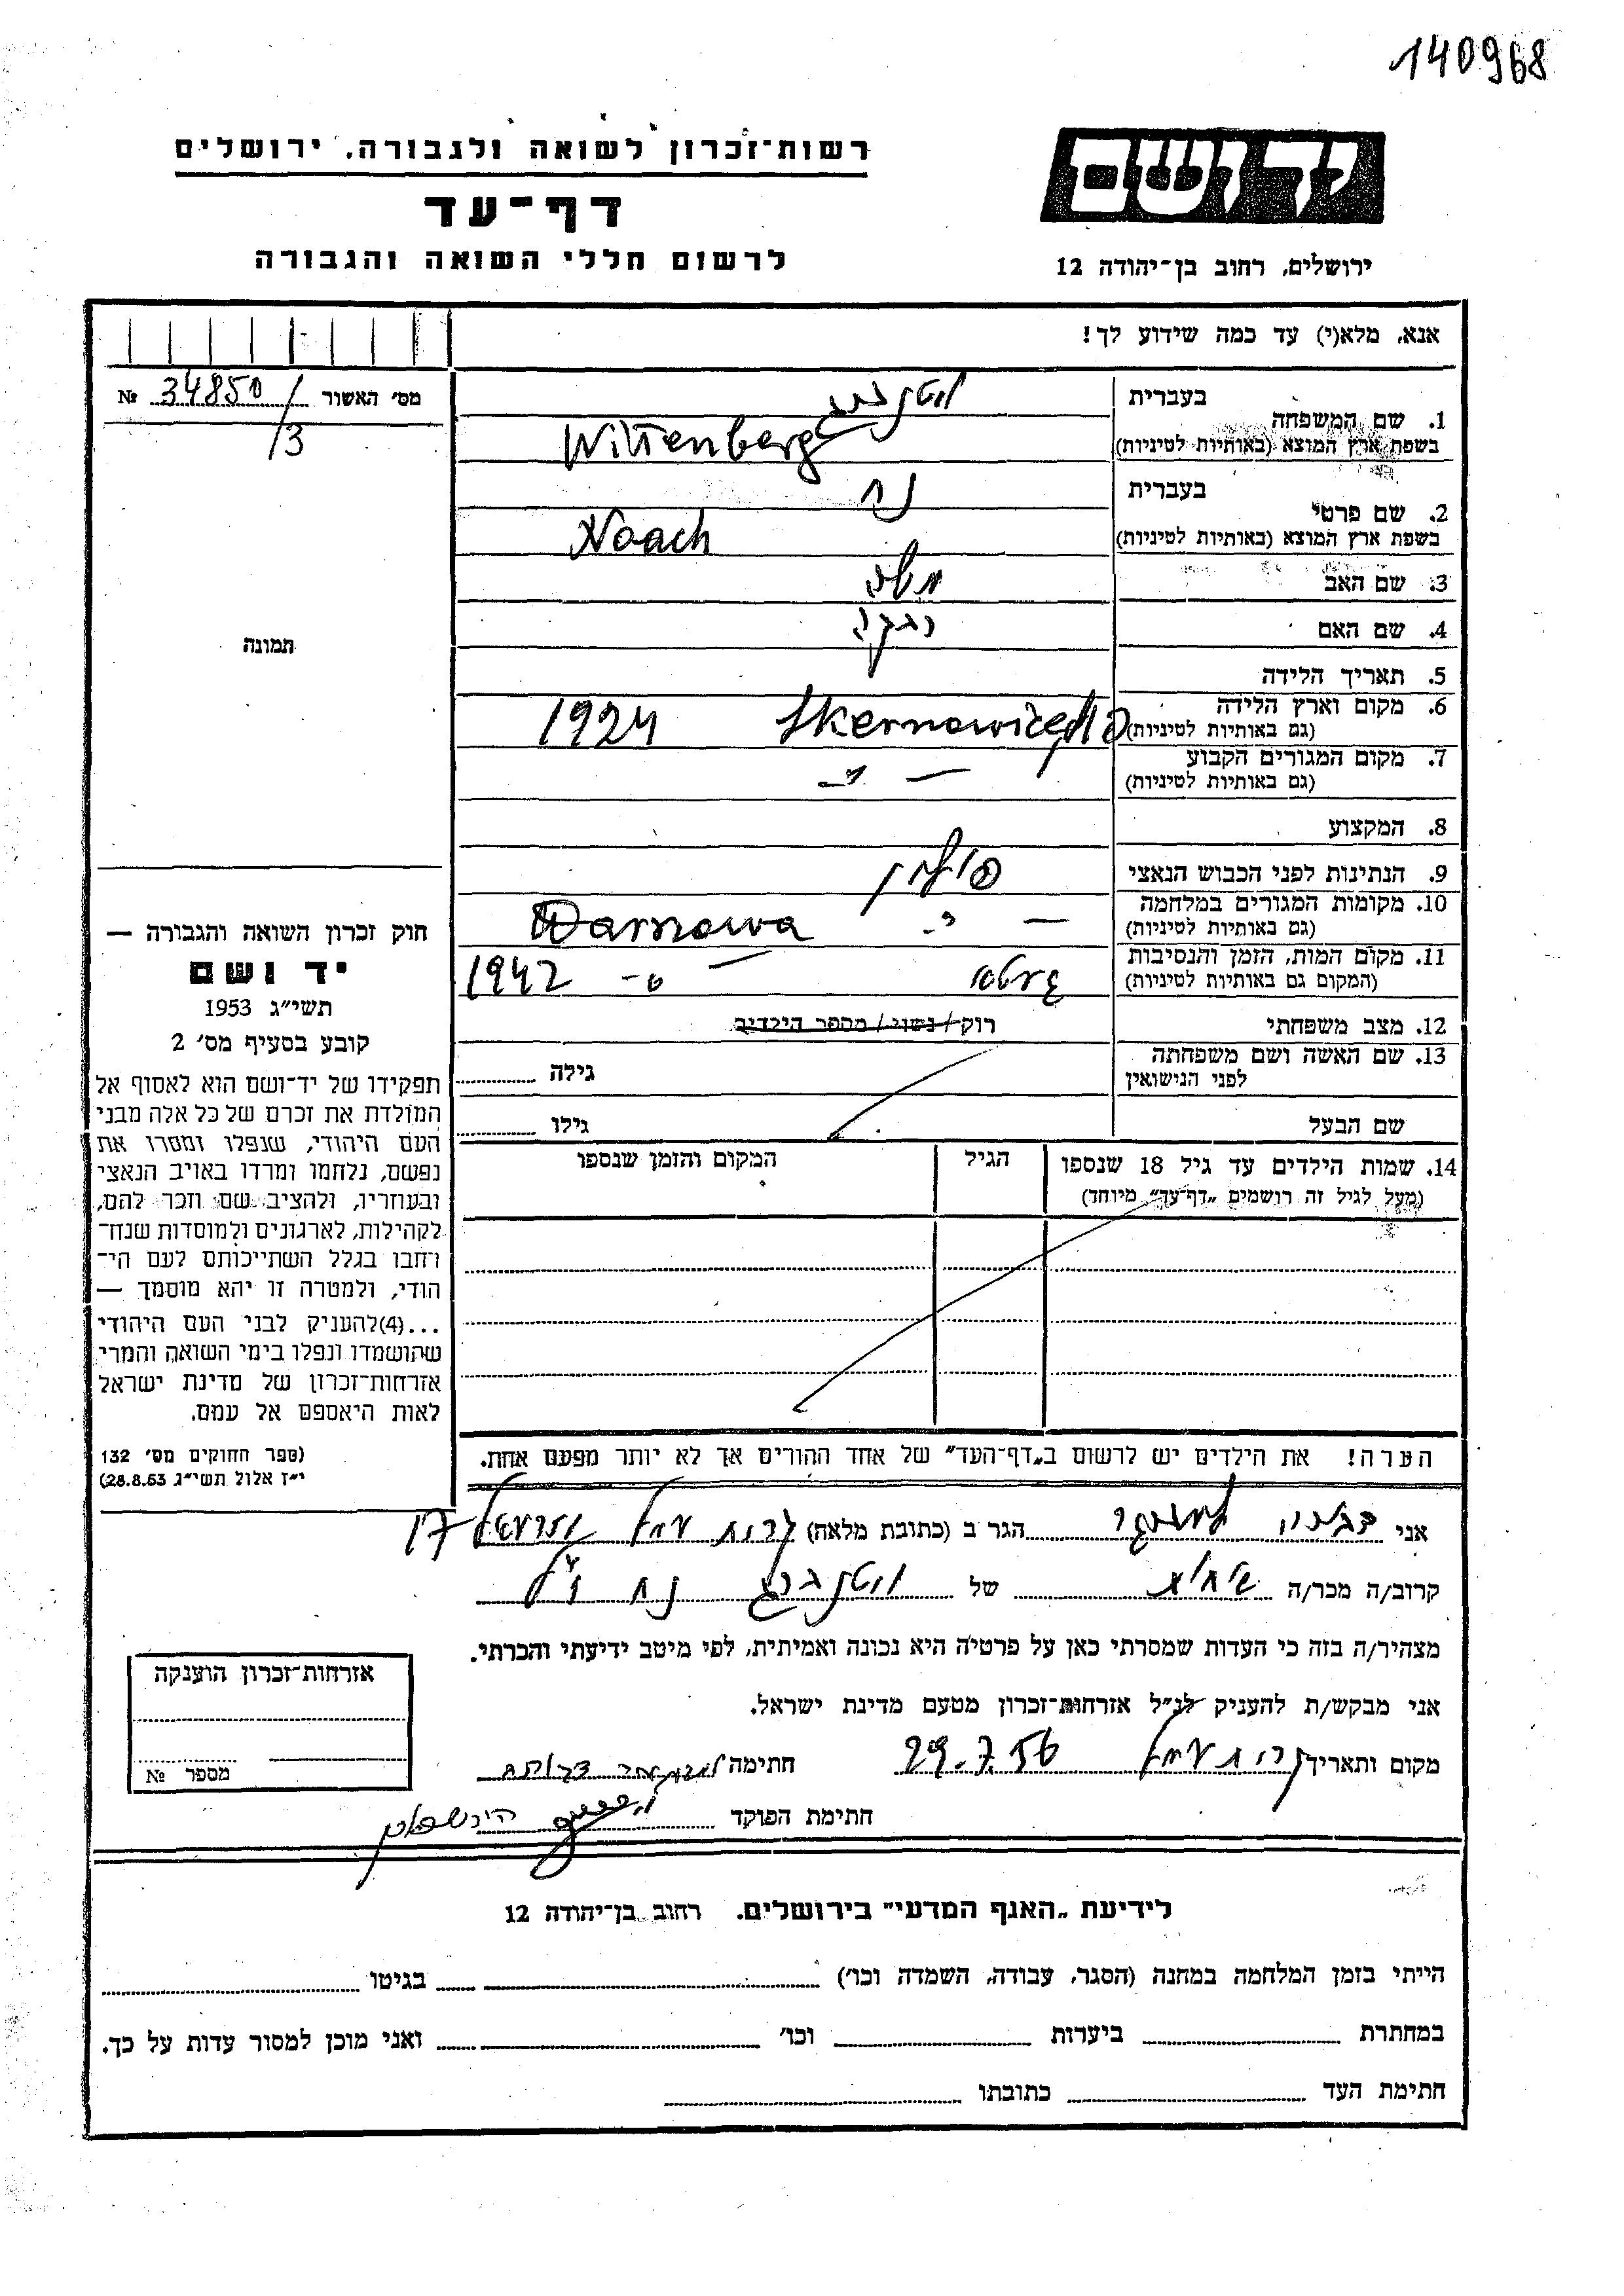 140968
רשות־זכרון לשואה ולגבורה, ירושלים
יד ושם
דף־עד
לרשום חללי השואה והגבורה
ירושלים, רחוב בן־יהודה 12
אנא, מלא(י) עד כמה שידוע לך!
מס׳ האשור 34850/ №
13
1. שם המשפחה
בעברית ויטנברג
בשפת ארץ המוצא (באותיות לטיניות) Wittenberg
2. שם פרטי
בעברית נח
בשפת ארץ המוצא (באותיות לטיניות) Noach
3. שם האב משה
4. שם האם רבקה
תמונה
5. תאריך הלידה
6. מקום וארץ הלידה
(גם באותיות לטיניות) 1924
7. מקום המגורים הקבוע
(גם באותיות לטיניות)
8. המקצוע
9. הנתינות לפני הכבוש הנאצי פולין
10. מקומות המגורים במלחמה
(גם באותיות לטיניות)
11. מקום המות, הזמן והנסיבות
(המקום גם באותיות לטיניות) 1942
12. מצב משפחתי רוק / נשוי / מספר הילדים
13. שם האשה ושם משפחתה
לפני הנישואין גילה
שם הבעל גילו
14. שמות הילדים עד גיל 18 שנספו
(מעל לגיל זה רושמים „דף־עד״ מיוחד)
הגיל
המקום והזמן שנספו
הערה! את הילדים יש לרשום ב„דף־העד״ של אחד ההורים אך לא יותר מפעם אחת.
חוק זכרון השואה והגבורה —
יד ושם
תשי״ג 1953
קובע בסעיף מס׳ 2
תפקידו של יד־ושם הוא לאסוף אל
המולדת את זכרם של כל אלה מבני
העם היהודי, שנפלו ומסרו את
נפשם, נלחמו ומרדו באויב הנאצי
ובעוזריו, ולהציב שם וזכר להם,
לקהילות, לארגונים ולמוסדות שנח־
רחבו בגלל השתייכותם לעם הי־
הודי, ולמטרה זו יהא מוסמך —
...(4)להעניק לבני העם היהודי
שהושמדו ונפלו בימי השואה והמרי
אזרחות־זכרון של מדינת ישראל
לאות היאספם אל עמם.
(ספר החוקים מס׳ 132
י״ז אלול תשי״ג 28.8.53)
אני הגר ב (כתובת מלאה)
קרוב/ה מכר/ה של ויטנברג נח ז״ל
מצהיר/ה בזה כי העדות שמסרתי כאן על פרטיה היא נכונה ואמיתית, לפי מיטב ידיעתי והכרתי.
אני מבקש/ת להעניק לנ״ל אזרחות־זכרון מטעם מדינת ישראל.
מקום ותאריך 29.7.56 חתימה
חתימת הפוקד
אזרחות־זכרון הוענקה
מספר №
לידיעת „האגף המדעי״ בירושלים. רחוב בן־יהודה 12
הייתי בזמן המלחמה במחנה (הסגר, עבודה, השמדה וכו׳) בגיטו
במחתרת ביערות וכו׳ ואני מוכן למסור עדות על כך.
חתימת העד כתובתו